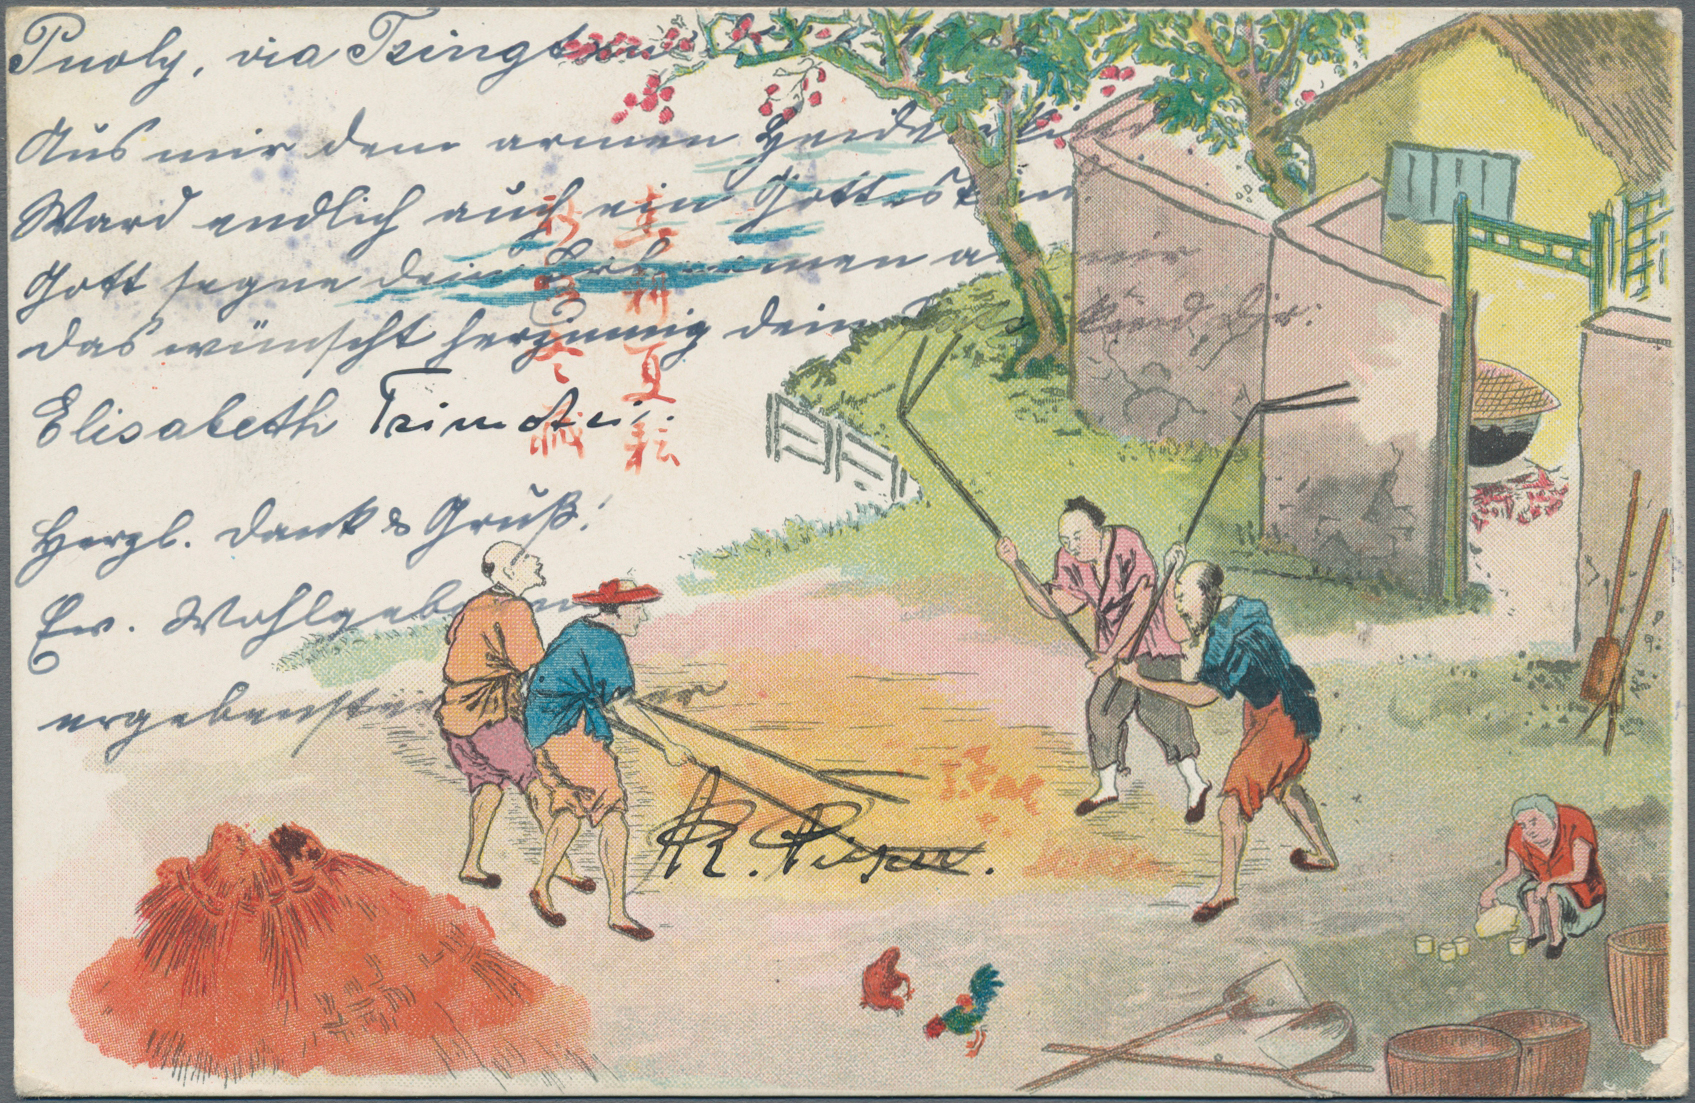 Puoly, via Tsingtau
Aus mir dem armen Heidenkind
Ward endlich auch ein Gotteskind
Gott segne dein Erbarmen an mir
das wünscht herzinnig dein
Elisabeth
Herzl. Dank & Gruß!
Ew. Wohlgeboren
ergebenster
R. Pieper.
春耕夏耘
秋收冬藏